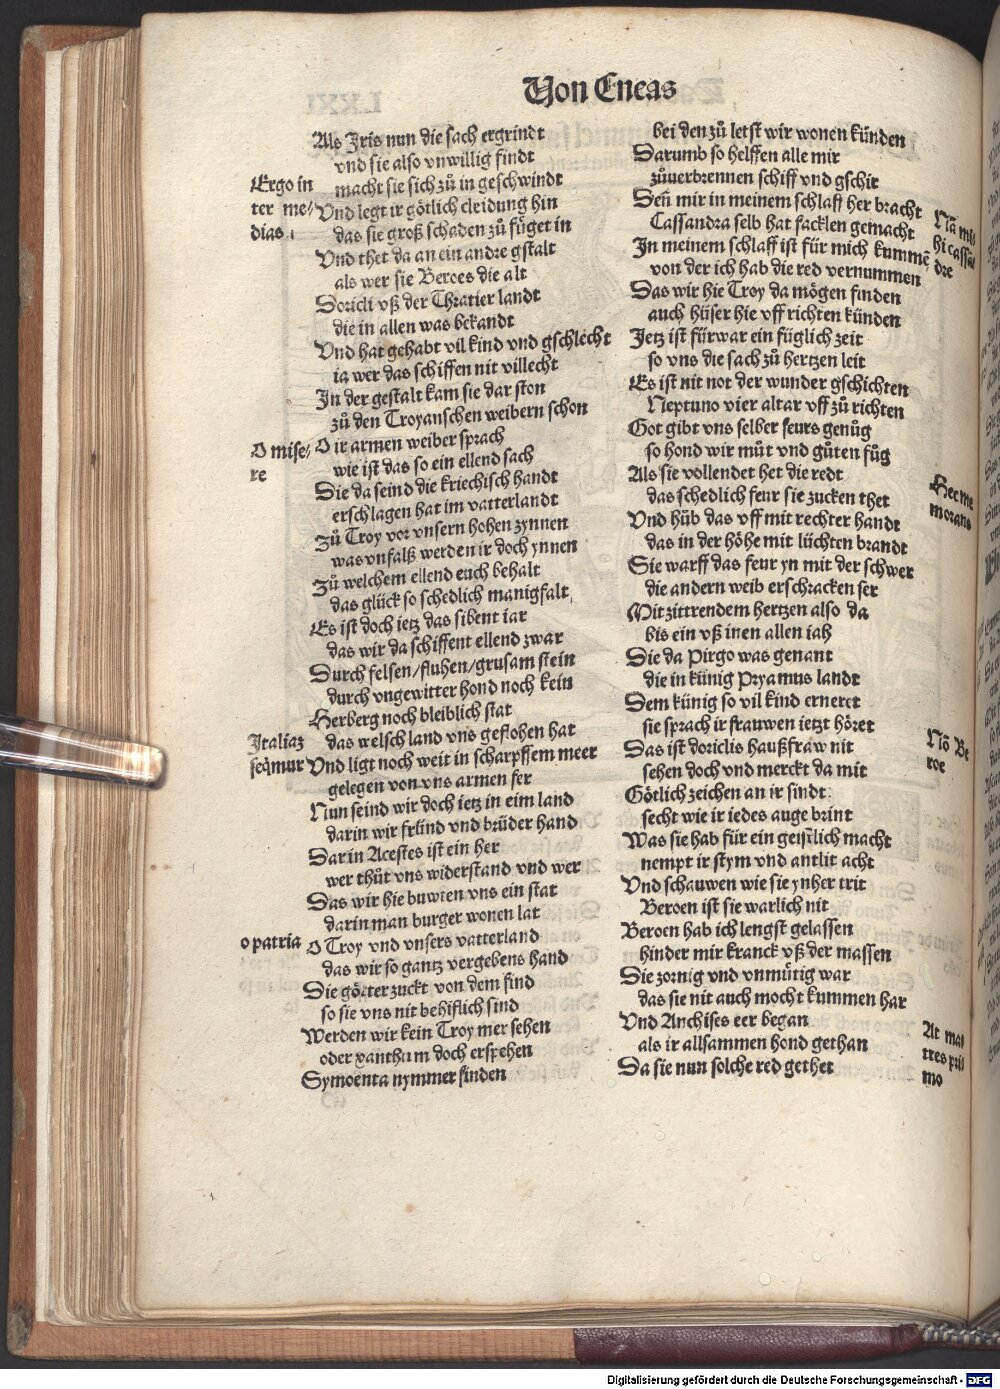 Von Eneas
Als Iris nun die sach ergrindt
vnd sie also vnwillig findt
Ergo in
ter me/
dias.
macht sie sich zů in geschwindt
Vnd legt ir götlich cleidung hin
das sie groß schaden zů füget in
Vnd thet da an ein andre gstalt
als wer sie Beroes die alt
Doricli vß der Thratier landt
die in allen was bekandt
Vnd hat gehabt vil kind vnd gschlecht
ia wer das schiffen nit villecht
In der gestalt kam sie dar ston
zů den Troyanschen weibern schon
O mise/
re
O ir armen weiber sprach
wie ist das so ein ellend sach
Die da seind die kriechisch handt
erschlagen hat im vatterlandt
Zů Troy vor vnsern hohen zynnen
was vnfalß werden ir doch ynnen
Zů welchem ellend euch behalt
das glück so schedlich manigfalt
Es ist doch ietz das sibent iar
das wir da schiffent ellend zwar
Durch felsen/fluhen/grusam stein
durch vngewitter hond noch kein
Herberg noch bleiblich stat
Italiaz
seq̃mur
das welsch land vns geflohen hat
Vnd ligt noch weit in scharpffem meer
gelegen von vns armen fer
Nun seind wir doch ietz in eim land
darin wir fründ vnd brüder hand
Darin Acestes ist ein her
wer thůt vns widerstand vnd wer
Das wir hie buwten vns ein stat
darin man burger wonen lat
o patria
O Troy vnd vnsers vatterland
das wir so gantz vergebens hand
Die götter zuckt von dem find
so sie vns nit behiflich sind
Werden wir kein Troy mer sehen
oder xanthum doch erspehen
Symoenta nymmer finden
bei den zů letst wir wonen künden
Darumb so helffen alle mir
zůuerbrennen schiff vnd gschir
Deñ mir in meinem schlaff her bracht
Cassandra selb hat facklen gemacht
Nã mi
hi cassã/
dre
In meinem schlaff ist für mich kummẽ
von der ich hab die red vernummen
Das wir hie Troy da mögen finden
auch hüser hie vff richten künden
Jetz ist fürwar ein füglich zeit
so vns die sach zů hertzen leit
Es ist nit not der wunder gschichten
Neptuno vier altar vff zů richten
Got gibt vns selber feurs genůg
so hond wir můt vnd gůten fůg
Als sie vollendet het die redt
das schedlich feur sie zucken thet
Hec me
morans
Vnd hůb das vff mit rechter handt
das in der höhe mit lüchten brandt
Sie warff das feur yn mit der schwer
die andern weib erschracken ser
Mit zittrendem hertzen also da
bis ein vß inen allen iah
Die da Pirgo was genant
die in künig Pryamus landt
Dem künig so vil kind erneret
sie sprach ir frauwen ietzt höret
Das ist doriclis haußfraw nit
sehen doch vnd merckt da mit
Nõ Be
roe
Götlich zeichen an ir sindt
secht wie ir iedes auge brint
Was sie hab für ein geistlich macht
nempt ir stym vnd antlit acht
Vnd schauwen wie sie ynher trit
Beroen ist sie warlich nit
Beroen hab ich lengst gelassen
hinder mir kranck vß der massen
Die zornig vnd vnmůtig war
das sie nit auch mocht kummen har
Vnd Anchises eer began
als ir allsammen hond gethan
Da sie nun solche red gethet
At ma
tres pri
mo
Digitalisierung gefördert durch die Deutsche Forschungsgemeinschaft - DFG